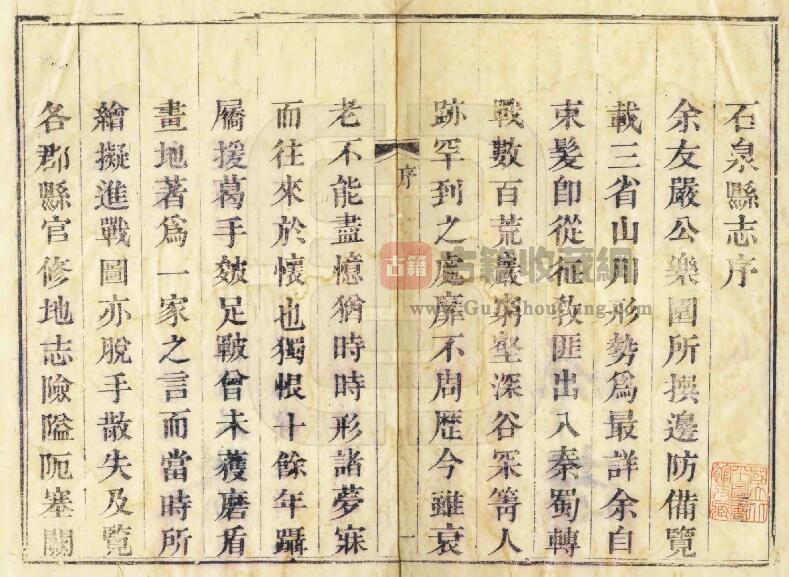 石泉縣志序
余友嚴公樂園所撰邊防備覽
載三省山川形勢爲最詳余自
束髮即從征教匪出入秦蜀轉
戰數百荒巖窮壑深谷冞箐人
跡罕到之處靡不周歷今雖衰
序
一
老不能盡憶猶時時形諸夢寐
而往來於懷也獨恨十餘年躡
屩援葛手皴足皸曾未獲磨盾
畫地著爲一家之言而當時所
繪擬進戰圖亦脫手散失及覽
各郡縣官修地志險隘阨塞關
古籍 古籍收藏網
www.GuJiShouCang.com